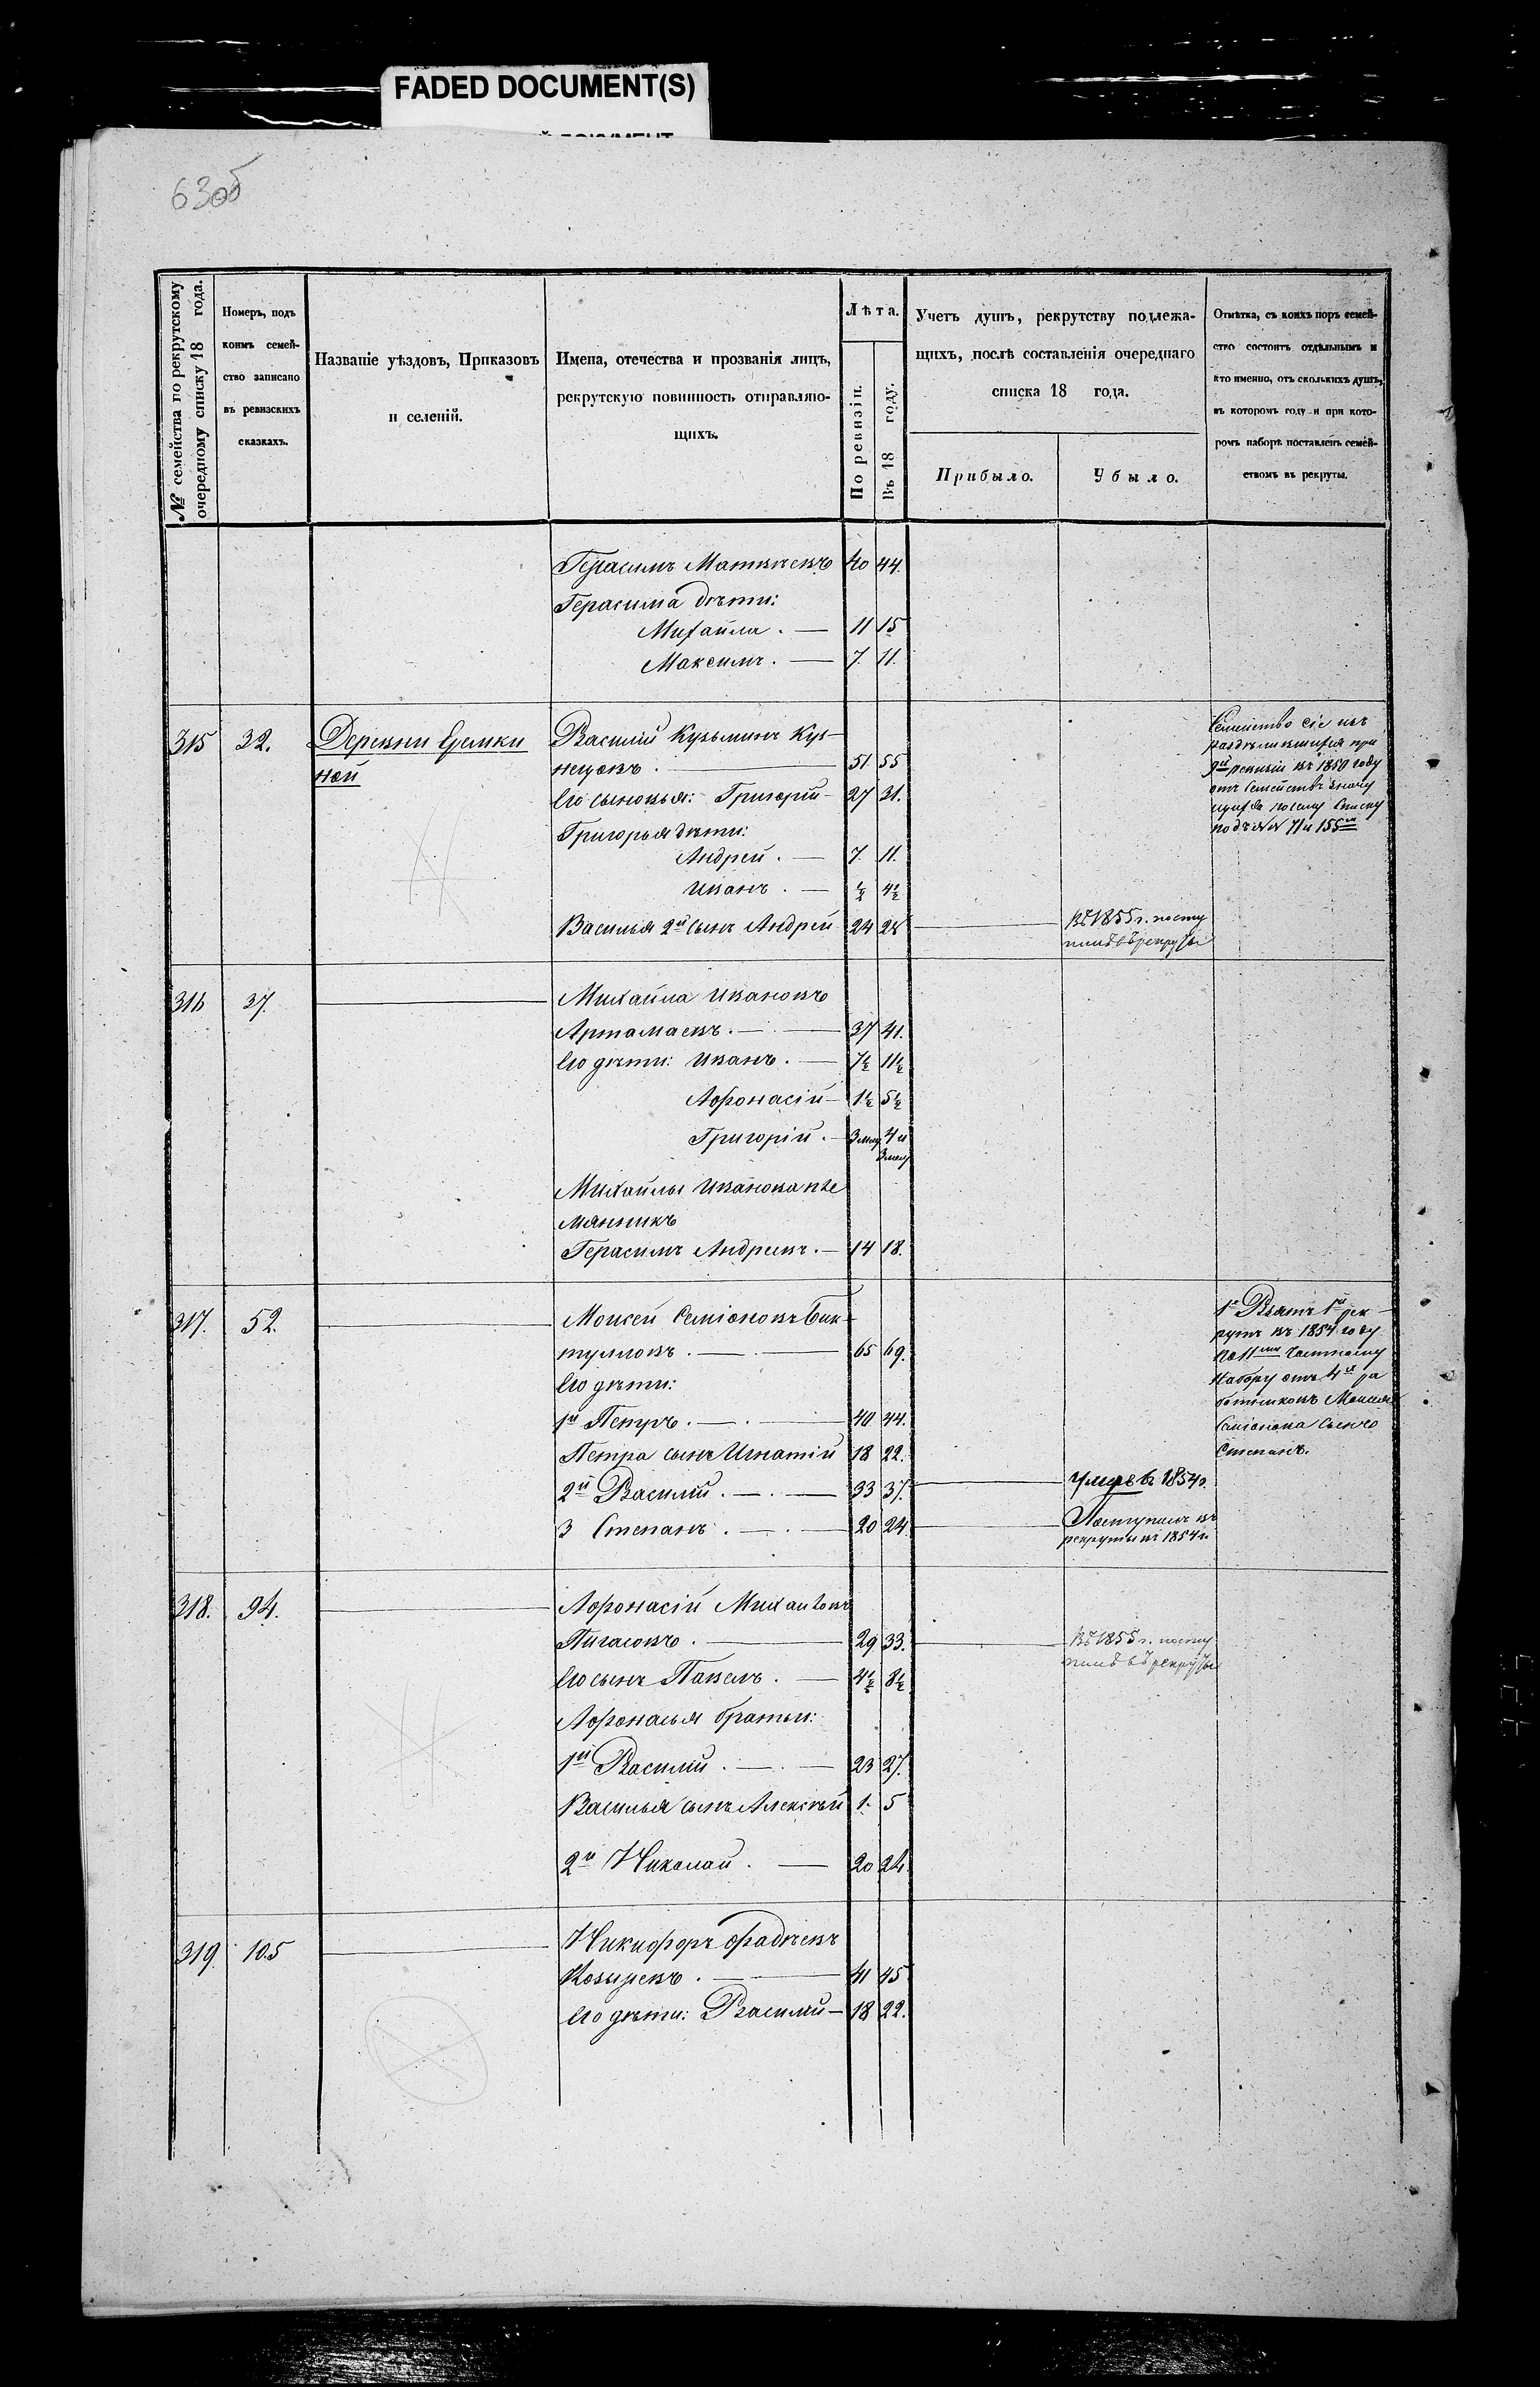 FADED DOCUMENT(S)
63об
№ семейства по рекрутскому очередному списку 18 года.
Номеръ, подъ
коимъ семей-
ство записано
въ ревизскихъ
сказкахъ.
Названіе уѣздовъ, Приказовъ
и селеній.
Имена, отечества и прозванія лицъ,
рекрутскую повинность отправляю-
щихъ.
Лѣта.
По ревизіи.
Въ 18 году.
Учетъ душъ, рекрутству подлежа-
щихъ, послѣ составленія очереднаго
списка 18 года.
Прибыло.
Убыло.
Отмѣтка, съ коихъ поръ семей-
ство состоитъ отдѣльнымъ и
кто именно, отъ сколькихъ душъ,
въ которомъ году и при кото-
ромъ наборѣ поставленъ семей-
ствомъ въ рекруты.
Герасимъ Матвѣевъ 40 44.
Герасима дѣти:
Михайла. 11 15
Максимъ. 7. 11.
315 32. Деревни
ной
Василій Кузьминъ Куз-
нецовъ. 51 55
Его сыновья: Григорій 27 31.
Григорья дѣти:
Андрей. 7. 11.
Иванъ. ½ 4½
Василья 2й сынъ Андрей 24 28
Въ 1855 г. посту
пилъ въ рекруты
Семейство сіе изъ
раздѣлившихся при
9й ревизіи въ 1850 году
отъ семействъ знача
щихся по сему списку
подъ №№ 71 и 155м
316 37.
Михайла Ивановъ
Артамаевъ. 37 41.
Его дѣти: Иванъ. 7½ 11½
Афонасій 1½ 5½
Григорій. 3 мец 4 и
3 мец
Михайлы Иванова пле
мянникъ
Герасимъ Андреевъ. 14 18.
317. 52.
Моисей Семіоновъ Бик-
туловъ. 65 69.
Его дѣти:
1й Петръ. 40 44.
Петра сынъ Игнатій 18 22.
2й Василій. 33 37.
Умеръ въ 1854 г.
3 Степанъ. 20 24
Поступилъ въ
рекруты въ 1854 г.
1е Взятъ 1й рек-
рутъ въ 1854 году
по 11му частному
набору отъ 4х ра
ботниковъ Моисея
Семіонова сынъ
Степанъ.
318. 94.
Афонасій Михайловъ
Пигасовъ. 29 33.
Въ 1855 г. посту
пилъ въ рекруты
Его сынъ Павелъ. 4½ 8½
Афонасья братьи:
1й Василій. 23 27.
Василья сынъ Алексѣй 1. 5
2й Николай. 20 24.
319. 105
Никифоръ Фадѣевъ
Козыревъ. 41 45
Его дѣти: Василій 18 22.